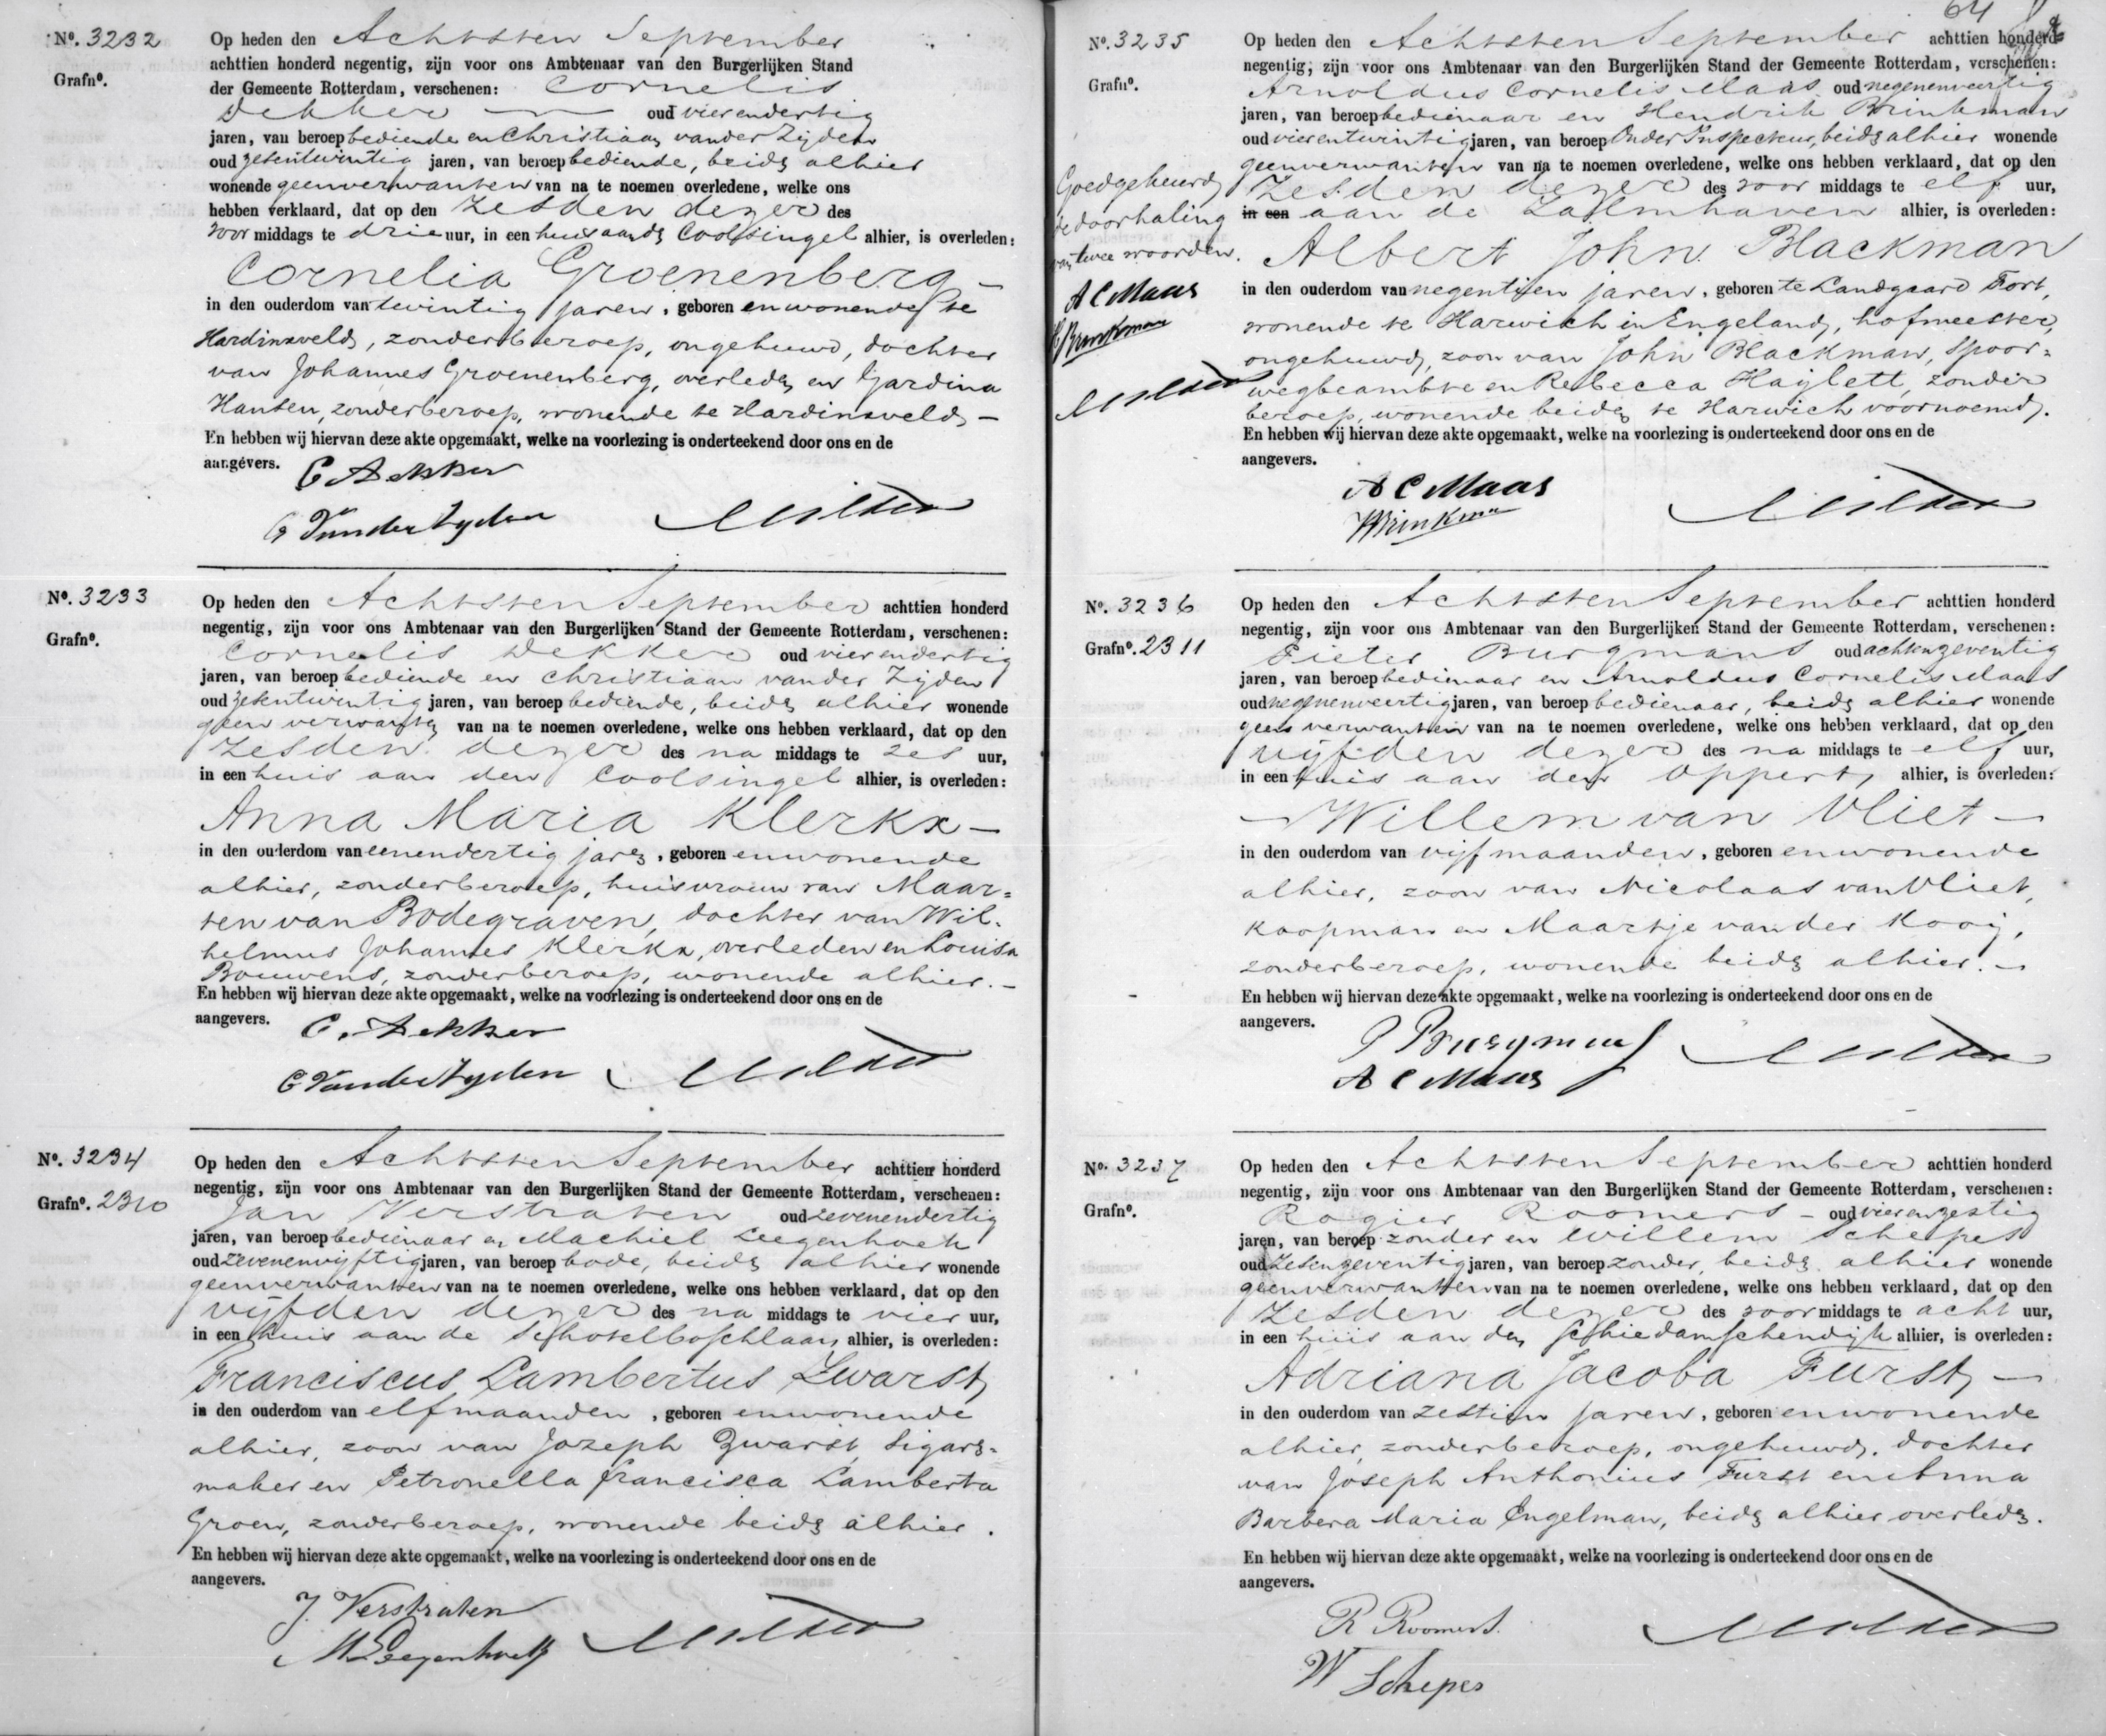 Nº. 3232
Grafnº.
Op heden den Achtsten September
achttien honderd negentig, zijn voor ons Ambtenaar van den Burgerlijken Stand
der Gemeente Rotterdam, verschenen: Cornelis
Dekker — oud vierendertig
jaren, van beroep bediende en Christiaan vander Zijden
oud zesentwintig jaren, van beroep bediende, beide alhier
wonende geenverwanten van na te noemen overledene, welke ons
hebben verklaard, dat op den Zesden dezer des
voor middags te drie uur, in een huis aan den Coolsingel alhier, is overleden:
Cornelia Groenenberg —
in den ouderdom van twintig jaren, geboren en wonende te
Hardinxveld, zonder beroep, ongehuwd, dochter
van Johannes Groenenberg, overleden en Gardina
Hansen, zonder beroep, wonende te Hardinxveld —
En hebben wij hiervan deze akte opgemaakt, welke na voorlezing is onderteekend door ons en de
aangevers.
C Dekker
C Vander Zyden
Nº. 3233
Grafnº.
Op heden den Achtsten September achttien honderd
negentig, zijn voor ons Ambtenaar van den Burgerlijken Stand der Gemeente Rotterdam, verschenen:
Cornelis Dekker oud vierendertig
jaren, van beroep bediende en Christiaan vander Zijden
oud zesentwintig jaren, van beroep bediende, beide alhier wonende
geen verwanten van na te noemen overledene, welke ons hebben verklaard, dat op den
Zesden dezer des na middags te zes uur,
in een huis aan den Coolsingel alhier, is overleden:
Anna Maria Klerkx —
in den ouderdom van eenendertig jaren, geboren en wonende
alhier, zonder beroep, huisvrouw van Maar=
ten van Bodegraven, dochter van Wil-
helmus Johannes Klerkx, overleden en Louisa
Bouwens, zonder beroep, wonende alhier. —
En hebben wij hiervan deze akte opgemaakt, welke na voorlezing is onderteekend door ons en de
aangevers.
C. Dekker
C Vander Zyden
Nº. 3234
Grafnº. 2310
Op heden den Achtsten September achttien honderd
negentig, zijn voor ons Ambtenaar van den Burgerlijken Stand der Gemeente Rotterdam, verschenen:
Jan Verstraten oud zevenendertig
jaren, van beroep bedienaar en Machiel Leegenhoek
oud zevenenvijftig jaren, van beroep bode, beide alhier wonende
geenverwanten van na te noemen overledene, welke ons hebben verklaard, dat op den
vijfden dezer des na middags te vier uur,
in een huis aan de Schotelboschlaan, alhier, is overleden:
Franciscus Lambertus Zwarst
in den ouderdom van elf maanden, geboren en wonende
alhier, zoon van Jozeph Zwarst, Sigare=
maker en Petronella Francisca Lamberta
Groen, zonder beroep, wonende beide alhier.
En hebben wij hiervan deze akte opgemaakt, welke na voorlezing is onderteekend door ons en de
aangevers.
J. Verstraten
M Leegenhoek
64
Nº. 3235
Grafnº.
Op heden den Achtsten September achttien honderd
negentig, zijn voor ons Ambtenaar van den Burgerlijken Stand der Gemeente Rotterdam, verschenen:
Arnoldus Cornelis Maas oud negenenveertig
jaren, van beroep bedienaar en Hendrik Brinkman
oud vierentwintig jaren, van beroep Onder Inspecteur, beide alhier wonende
geenverwanten van na te noemen overledene, welke ons hebben verklaard, dat op den
Zesden dezer des voor middags te elf uur,
in een aan de Zalmhaven alhier, is overleden:
Albert John Blackman
in den ouderdom van negentien jaren, geboren te Landgaard Fort,
wonende te Harwich in Engeland, hofmeester,
ongehuwd, zoon van John Blackman, spoor=
wegbeambte en Rebecca Haylett, zonder
beroep, wonende beide te Harwich voornoemd.
En hebben wij hiervan deze akte opgemaakt, welke na voorlezing is onderteekend door ons en de
aangevers.
A C Maas
HBrinkman
Goedgekeurd
de doorhaling
van twee woorden.
A C Maas
HBrinkman
Nº. 3236
Grafnº. 2311
Op heden den Achtsten September achttien honderd
negentig, zijn voor ons Ambtenaar van den Burgerlijken Stand der Gemeente Rotterdam, verschenen:
Pieter Burgmans oud achtenzeventig
jaren, van beroep bedienaar en Arnoldus Cornelis Maas
oud negenenveertig jaren, van beroep bedienaar, beide alhier wonende
geen verwanten van na te noemen overledene, welke ons hebben verklaard, dat op den
vijfden dezer des na middags te elf uur,
in een huis aan den Oppert, alhier, is overleden:
— Willem van Vliet —
in den ouderdom van vijf maanden, geboren en wonende
alhier, zoon van Nicolaas van Vliet,
koopman en Maartje vander Kooij,
zonder beroep, wonende beide alhier. —
En hebben wij hiervan deze akte opgemaakt, welke na voorlezing is onderteekend door ons en de
aangevers.
P Burgmans
A C Maas
Nº. 3237
Grafnº.
Op heden den Achtsten September achttien honderd
negentig, zijn voor ons Ambtenaar van den Burgerlijken Stand der Gemeente Rotterdam, verschenen:
Rogier Roomers — oud vierenzestig
jaren, van beroep zonder en Willem Schepes
oud zesenzeventig jaren, van beroep zonder, beide alhier wonende
geenverwanten van na te noemen overledene, welke ons hebben verklaard, dat op den
Zesden dezer des voor middags te acht uur,
in een huis aan den Schiedamschendijk alhier, is overleden:
Adriana Jacoba Furst —
in den ouderdom van zestien jaren, geboren en wonende
alhier, zonder beroep, ongehuwd, dochter
van Joseph Anthonius Furst en Anna
Barbera Maria Engelman, beide alhier overleden.
En hebben wij hiervan deze akte opgemaakt, welke na voorlezing is onderteekend door ons en de
aangevers.
R Roomers.
W Schepes